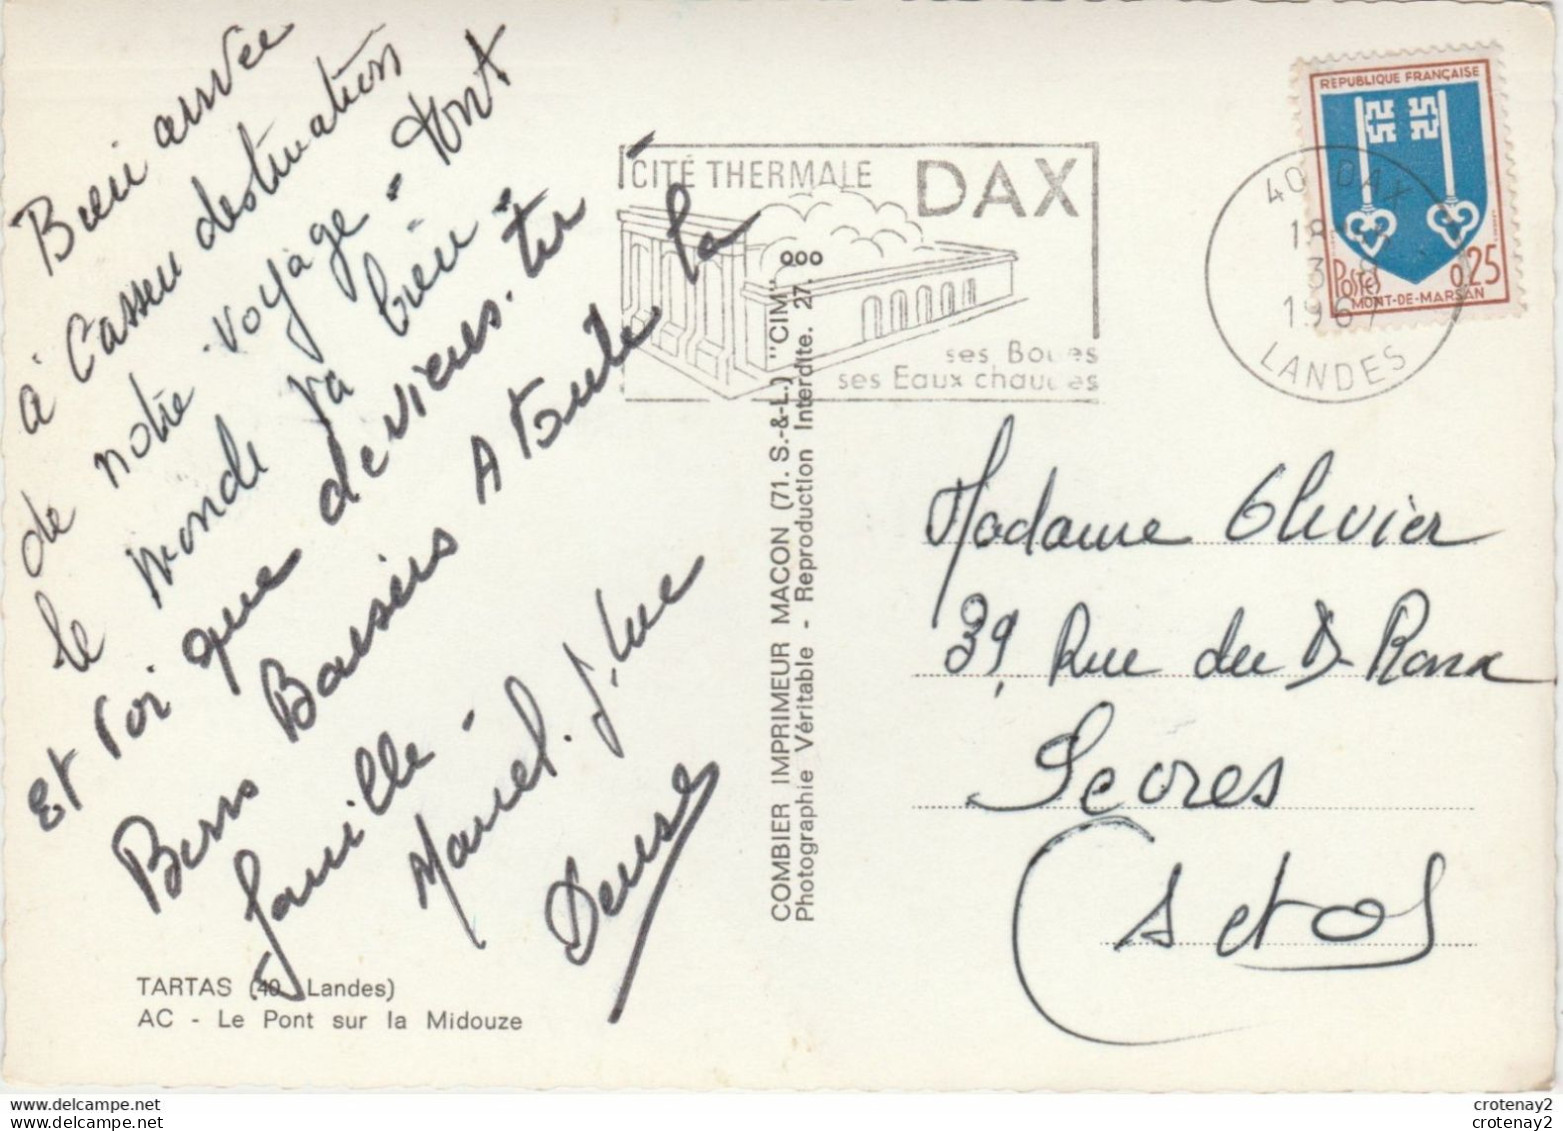 Bien arrivée
à Cassen destination
de notre voyage. Tout
le monde va bien.
Et toi que deviens-tu
Bons Baisers A toute la
famille -
Marcel. J. Luc
Denise
TARTAS (40 Landes)
AC - Le Pont sur la Midouze
COMBIER IMPRIMEUR MACON (71. S.-&-L.) "CIM"
Photographie Véritable - Reproduction Interdite. 27.
CITÉ THERMALE DAX
ses Boues
ses Eaux chaudes
40 DAX
1967
LANDES
RÉPUBLIQUE FRANÇAISE
POSTES 0,25
MONT-DE-MARSAN
Madame Olivier
39, Rue du Dr Roux
Sèvres
(S et O)
crotenay2
crotenay2